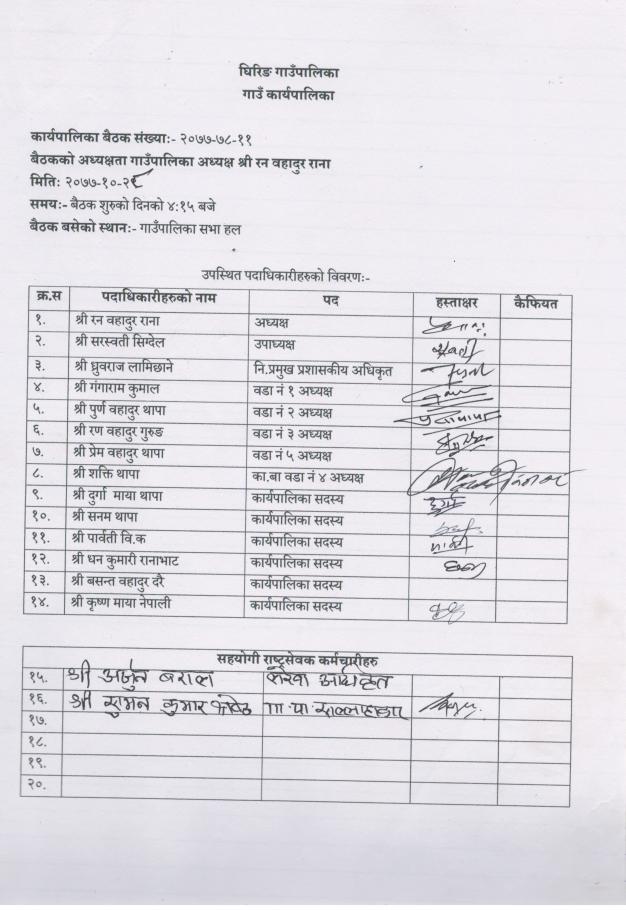 घिरिङ गाउँपालिका
गाउँ कार्यपालिका
कार्यपालिका बैठक संख्याः- २०७७-७८-११
बैठकको अध्यक्षता गाउँपालिका अध्यक्ष श्री रन वहादुर राना
मितिः २०७७-१०-२
समयः- बैठक शुरुको दिनको ४:१५ बजे
बैठक बसेको स्थानः- गाउँपालिका सभा हल
उपस्थित पदाधिकारीहरुको विवरणः-
क्र.स पदाधिकारीहरुको नाम पद हस्ताक्षर कैफियत
१. श्री रन वहादुर राना अध्यक्ष
२. श्री सरस्वती सिग्देल उपाध्यक्ष
३. श्री ध्रुवराज लामिछाने नि.प्रमुख प्रशासकीय अधिकृत
४. श्री गंगाराम कुमाल वडा नं १ अध्यक्ष
५. श्री पुर्ण वहादुर थापा वडा नं २ अध्यक्ष
६. श्री रण वहादुर गुरुङ वडा नं ३ अध्यक्ष
७. श्री प्रेम वहादुर थापा वडा नं ५ अध्यक्ष
८. श्री शक्ति थापा का.बा वडा नं ४ अध्यक्ष
९. श्री दुर्गा माया थापा कार्यपालिका सदस्य दुर्गा
१०. श्री सनम थापा कार्यपालिका सदस्य
११. श्री पार्वती वि.क कार्यपालिका सदस्य
१२. श्री धन कुमारी रानाभाट कार्यपालिका सदस्य
१३. श्री बसन्त वहादुर दरै कार्यपालिका सदस्य
१४. श्री कृष्ण माया नेपाली कार्यपालिका सदस्य
सहयोगी राष्ट्रसेवक कर्मचारीहरु
१५. श्री अर्जुन बराल लेखा अधिकृत
१६. श्री सुमन कुमार गा.पा.सल्लाहकार
१७.
१८.
१९.
२०.